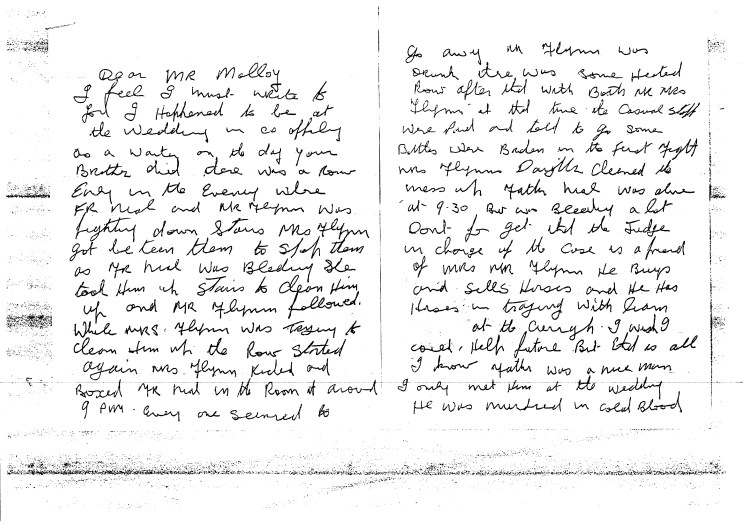 Dear MR Malloy
I feel I must write to
you I Happened to be at
the Wedding in co offaly
as a waiter on the day your
Brother died there was a Row
Early in the Evening where
FR Nial and MR Flynn was
fighting down Stairs MRs Flynn
got be teen them to Stop them
as FR Nial was Bleeding She
took Him up Stairs to Clean Him
up and MR Flynn followed.
While MRS. Flynn was trying to
clean Him up the Row Started
again MRS. Flynn Kicked and
Boxed FR Nial in the Room at around
9 PM. Every one seemed to
go away MR Flynn was
Drunk there was some Heated
Row after that with Both MR MRs
Flynn at that time the Casual staff
were Paid and told to go some
Bottles were Broken in the first Fight
MRs Flynns Daughter Cleaned the
mess up Father Nial was alive
at 9-30 But was Bleeding a lot
Dont for get that the Judge
in charge of the Case is a friend
of MRs MR Flynn He Buys
and Sells Horses and He Has
Horses in traying with
at the Curragh. I wish I
could. Help future But that is all
I know Father was a nice man
I only met Him at the wedding
He was murdred in Cold Blood